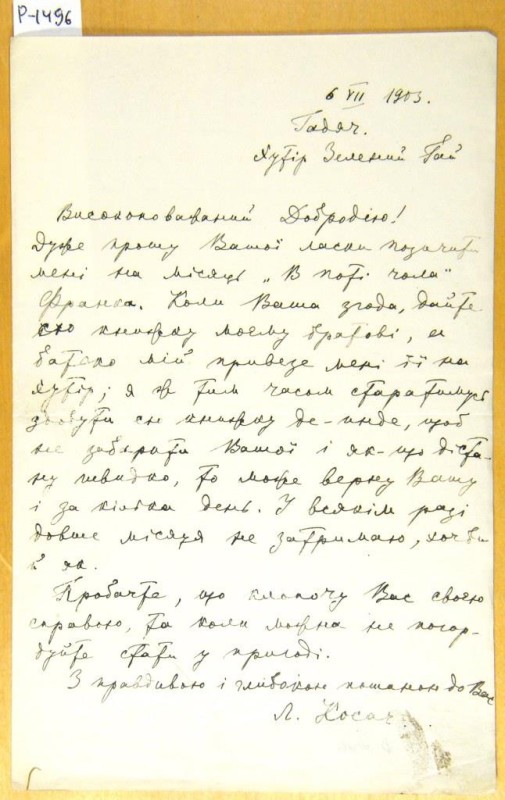 Р-1496
6 VII 1903.
Гадяч.
Хутір Зелений Гай
Високоповажаний Добродію!
Дуже прошу Вашої ласки позичити
мені на місяць „В поті чола"
Франка. Коли Ваша згода, дайте
сю книжку моєму братові, а
батько мій привезе мені її на
хутір; я ж тим часом старатимусь
здобути сю книжку де-инде, щоб
не забирати Вашої і як-що діста-
ну швидко, то може верну Вашу
і за кілька день. У всякім разі
довше місяця не затримаю, хоч би
й як.
Пробачте, що клопочу Вас своєю
справою, та коли можна не погор-
дуйте стати у пригоді.
З правдивою і глибокою пошаною до Вас
Л. Косач.